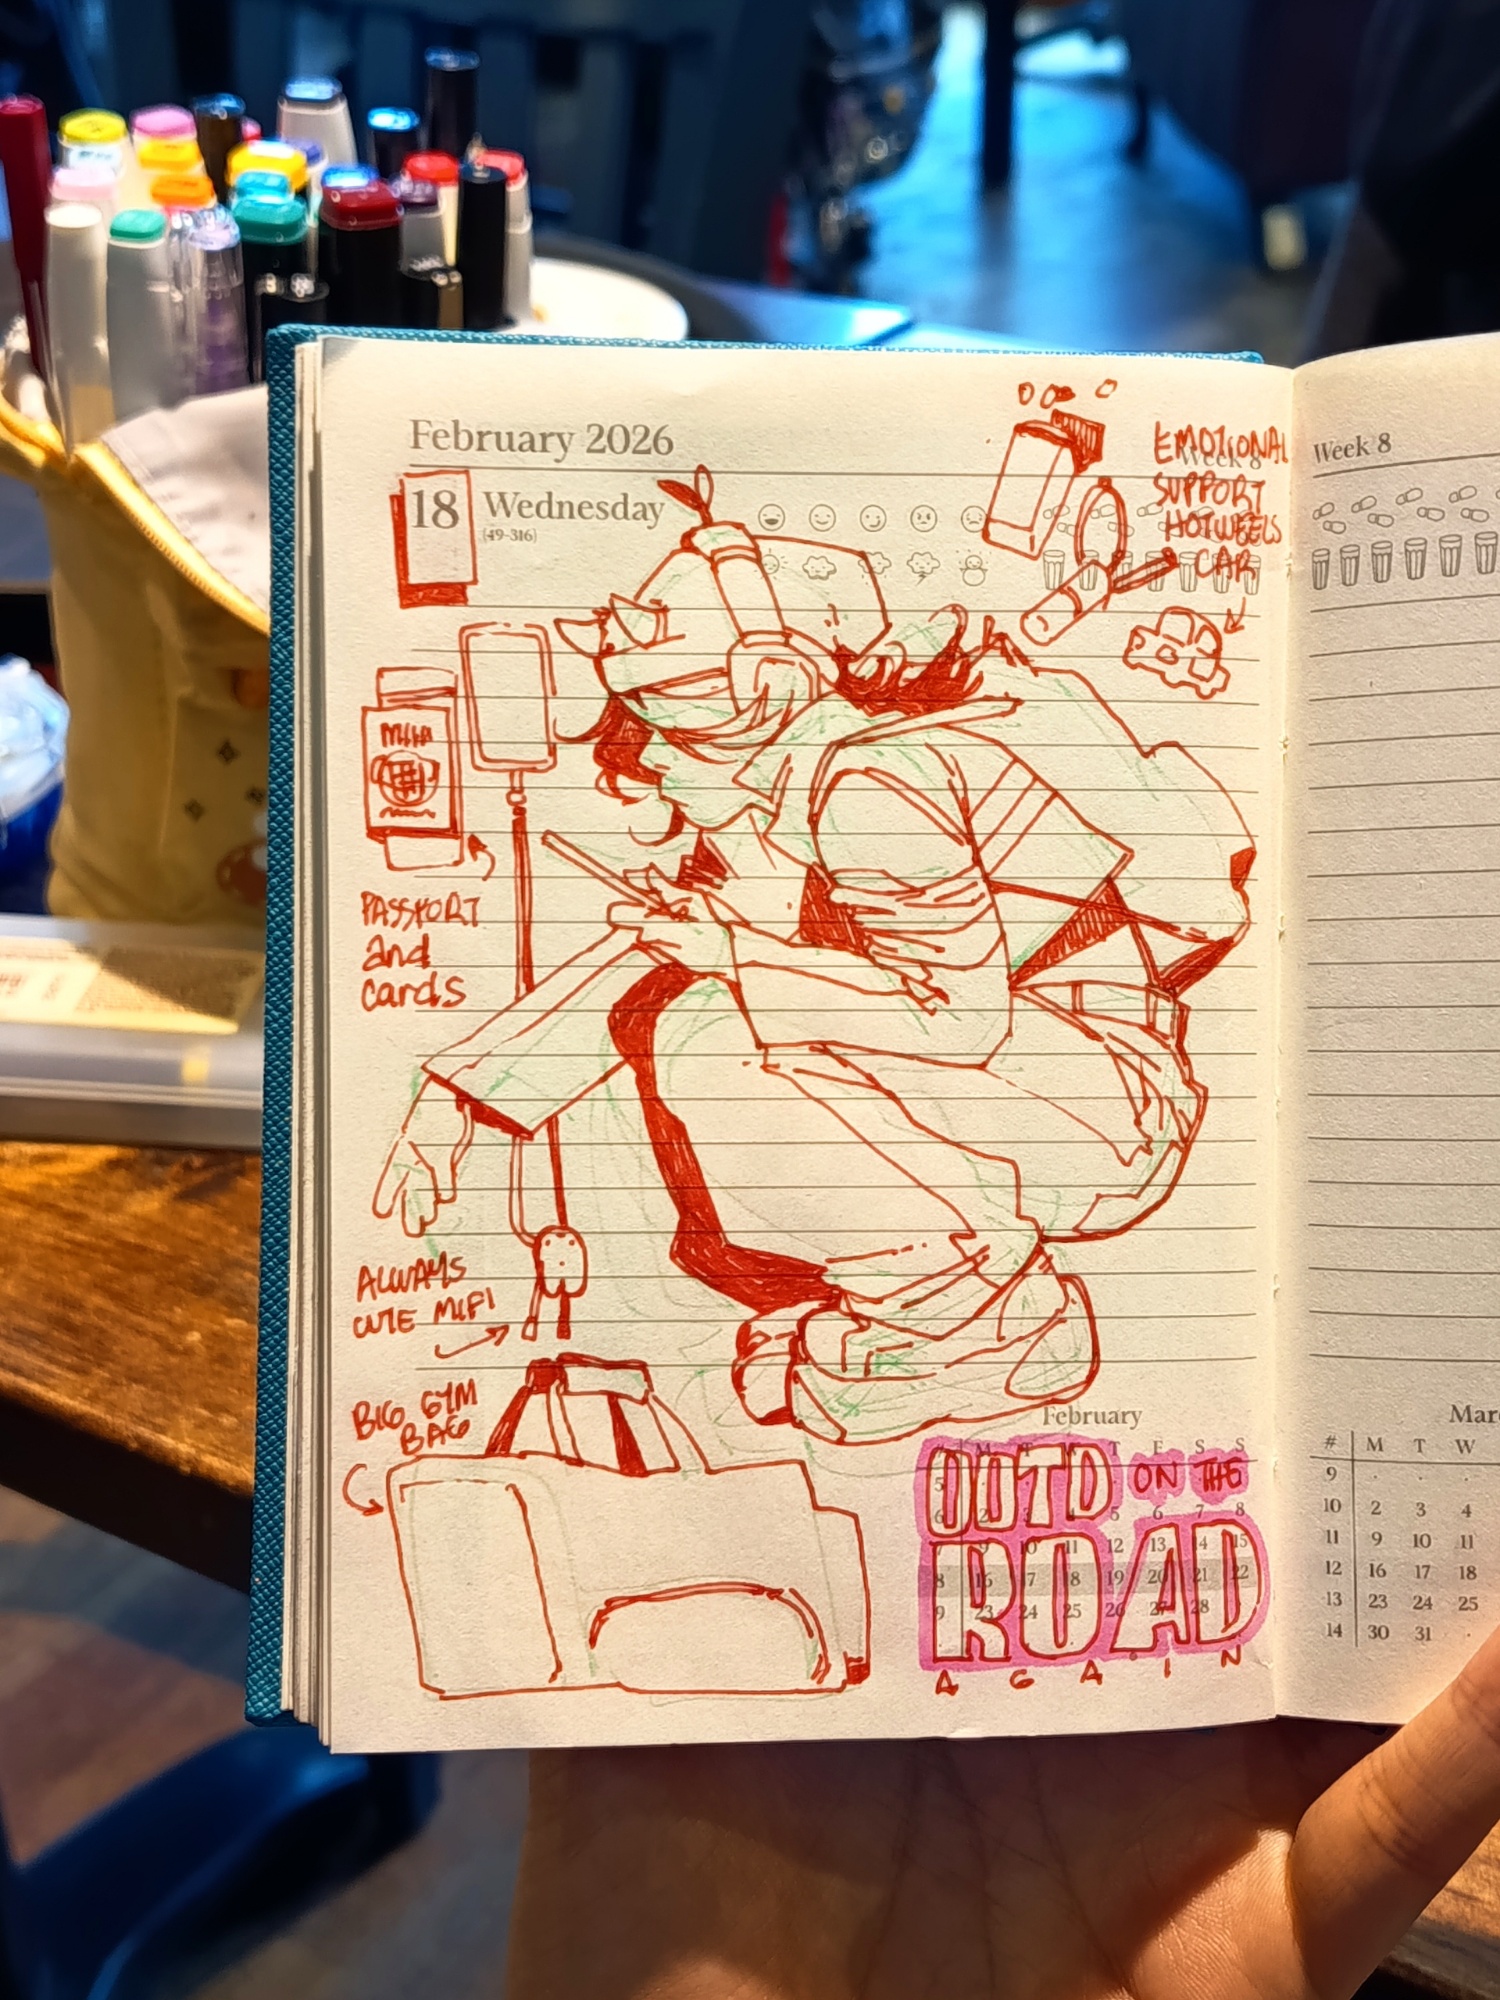 February 2026
Week 8
18 Wednesday
(49-316)
EMOTIONAL
SUPPORT
HOTWEELS
CAR
PASSPORT
and
cards
ALWAYS
CUTE MIFI
BIG GYM
BAG
February
# M T W T F S S
OUTD ON THE
ROAD
AGAIN
5
6 2 3 4 5 6 7 8
9 10 11 12 13 14 15
8 16 17 18 19 20 21 22
9 23 24 25 26 27 28
Week 8
Mar
# M T W
9
10 2 3 4
11 9 10 11
12 16 17 18
13 23 24 25
14 30 31